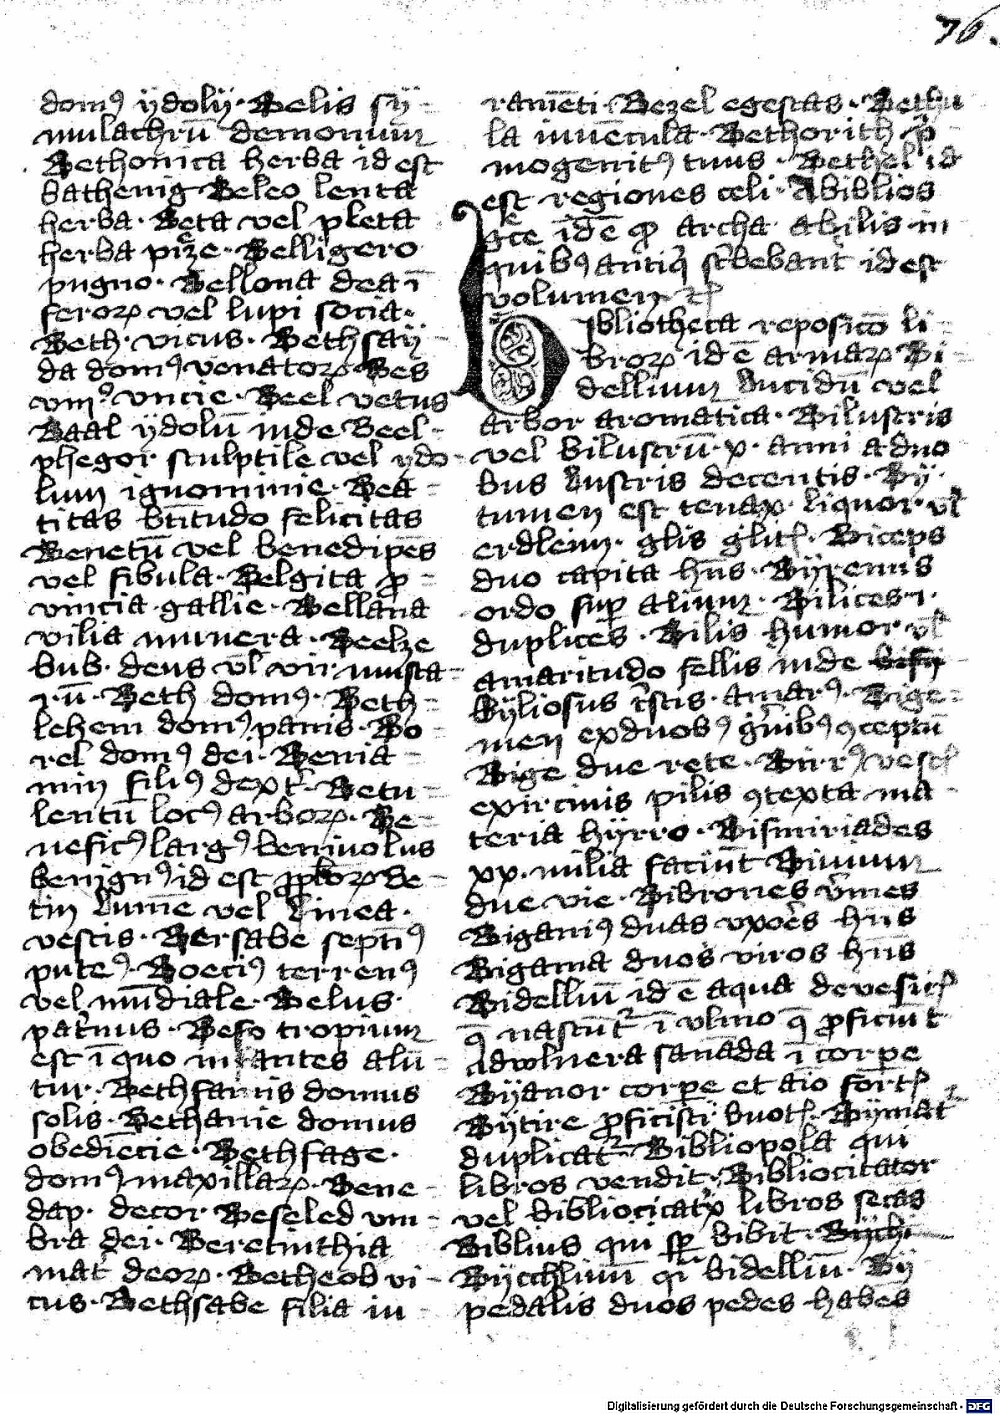 76.
domꝰ ẏdolÿ · Belis sÿ-
mulachrū demonium
Bethonica herba id est
bathenig Beleo lenta
herba · Beta vel pleta
herba · Belligero
pugno · Bellona dea ī
feroꝝ vel lupi socia ·
Beth · vicus · Bethsaÿ-
da domꝰ venatoꝝ · Bes
vncie · Beel vetus
Baal ẏdolū inde Beel-
phegor sculptile vel ydo-
lum ignominie · Bea-
titas btītudo felicitas
Benetū vel benedipēs
vel fibula · Belgita ꝓ-
vincia gallie · Bellaria
vilia munera · Beelze
bub · deus vl̄ vir musca-
rū · Beth domꝰ · Beth-
lehem domꝰ panis · Bo
rel domꝰ dei · Benia-
min filiꝰ dext̄ · Betu-
lentū locꝰ arboꝝ · Be-
neficꝰ largꝰ benivolus
benignꝰ id est de-
tin vel linea ·
vestis · Bersabe septīꝰ
puteꝰ · Boeciꝰ terrenꝰ
vel mūdiale · Belus ·
pat̄nus · Befotropium
est ī quo infantes alū-
tur · Bethfamis domus
solis · Bethanie domus
obediēcie · Bethfage ·
domꝰ maxillaꝝ · Bene-
dap · decor Beseleel vm-
bra dei · Berecinthia
mat̄ deoꝝ · Betheob vi-
cus · Bethsabe filia iu-
ramēti · Bezel egestas · Bethu
la iuuēcula · Bethorith p̄
mogenitꝰ tuus · Bethel id
est regiones celi · A biblios
gͤce idē ꝙ archa abilis in
quibꝰ antiq̄ sc̄bebant id est
volumen
Bibliotheca reposicō li-
broꝝ id ē armaꝝ · Bi-
dellium lucidū vel
arbor aromatica · Bilustris
vel bilustrū · x · anni a duo
bus lustris decentis · Bÿ-
tumen est tenax liquor · vl̄
erdleim · glis glit̄ · Biceps
duo capita hn̄s · Bÿrenus
ordo sup̄ alium · Bilices · i ·
duplices · Bilis humor vl̄
amaritudo fellis inde
Bÿliosus t̄stis · amarꝰ · Bige-
men ex duobꝰ ḡn̄ibꝰ ꝯceptū
Bige due rete · Birrꝰ vest̄
ex ircinis pilis ꝯtexta ma-
teria hÿrro · Bismiriades
xx · milia faciūt Biuium
due vie · Bibrones v̄mes
Biganiꝰ duas vxoēs hn̄s
Bigama duos viros hn̄s
Bidelliū id ē aqua de vesic̄
q̄ nascūt̄ ī vlmo q̄ ꝓficiūt
ad wlnera sanāda ī corpe
Bÿanor corpe et aīo fort̄
Bÿtire ꝓficisci duot̄ · Bÿmat̄
duplicat̄ · Bibliopola qui
libros vendit · Bibliocitator
vel libros secās
Biblius qui sp̄ bibit ·
Bÿcchlinū bidelliū · Bÿ
pedalis duos pedes habēs
Digitalisierung gefördert durch die Deutsche Forschungsgemeinschaft - DFG